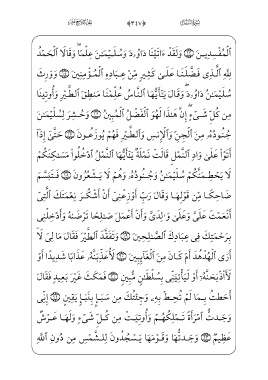 ٱلْمُفْسِدِينَ ۝١٤ وَلَقَدْ ءَاتَيْنَا دَاوُۥدَ وَسُلَيْمَٰنَ عِلْمًا ۖ وَقَالَا ٱلْحَمْدُ
لِلَّهِ ٱلَّذِى فَضَّلَنَا عَلَىٰ كَثِيرٍ مِّنْ عِبَادِهِ ٱلْمُؤْمِنِينَ ۝١٥ وَوَرِثَ
سُلَيْمَٰنُ دَاوُۥدَ ۖ وَقَالَ يَٰٓأَيُّهَا ٱلنَّاسُ عُلِّمْنَا مَنطِقَ ٱلطَّيْرِ وَأُوتِينَا
مِن كُلِّ شَىْءٍ ۖ إِنَّ هَٰذَا لَهُوَ ٱلْفَضْلُ ٱلْمُبِينُ ۝١٦ وَحُشِرَ لِسُلَيْمَٰنَ
جُنُودُهُۥ مِنَ ٱلْجِنِّ وَٱلْإِنسِ وَٱلطَّيْرِ فَهُمْ يُوزَعُونَ ۝١٧ حَتَّىٰٓ إِذَآ
أَتَوْا۟ عَلَىٰ وَادِ ٱلنَّمْلِ قَالَتْ نَمْلَةٌ يَٰٓأَيُّهَا ٱلنَّمْلُ ٱدْخُلُوا۟ مَسَٰكِنَكُمْ
لَا يَحْطِمَنَّكُمْ سُلَيْمَٰنُ وَجُنُودُهُۥ وَهُمْ لَا يَشْعُرُونَ ۝١٨ فَتَبَسَّمَ
ضَاحِكًا مِّن قَوْلِهَا وَقَالَ رَبِّ أَوْزِعْنِىٓ أَنْ أَشْكُرَ نِعْمَتَكَ ٱلَّتِىٓ
أَنْعَمْتَ عَلَىَّ وَعَلَىٰ وَٰلِدَىَّ وَأَنْ أَعْمَلَ صَٰلِحًا تَرْضَىٰهُ وَأَدْخِلْنِى
بِرَحْمَتِكَ فِى عِبَادِكَ ٱلصَّٰلِحِينَ ۝١٩ وَتَفَقَّدَ ٱلطَّيْرَ فَقَالَ مَا لِىَ لَآ
أَرَى ٱلْهُدْهُدَ أَمْ كَانَ مِنَ ٱلْغَآئِبِينَ ۝٢٠ لَأُعَذِّبَنَّهُۥ عَذَابًا شَدِيدًا أَوْ
لَأَا۟ذْبَحَنَّهُۥٓ أَوْ لَيَأْتِيَنِّى بِسُلْطَٰنٍ مُّبِينٍ ۝٢١ فَمَكَثَ غَيْرَ بَعِيدٍ فَقَالَ
أَحَطتُ بِمَا لَمْ تُحِطْ بِهِۦ وَجِئْتُكَ مِن سَبَإٍۭ بِنَبَإٍ يَقِينٍ ۝٢٢ إِنِّى
وَجَدتُّ ٱمْرَأَةً تَمْلِكُهُمْ وَأُوتِيَتْ مِن كُلِّ شَىْءٍ وَلَهَا عَرْشٌ
عَظِيمٌ ۝٢٣ وَجَدتُّهَا وَقَوْمَهَا يَسْجُدُونَ لِلشَّمْسِ مِن دُونِ ٱللَّهِ